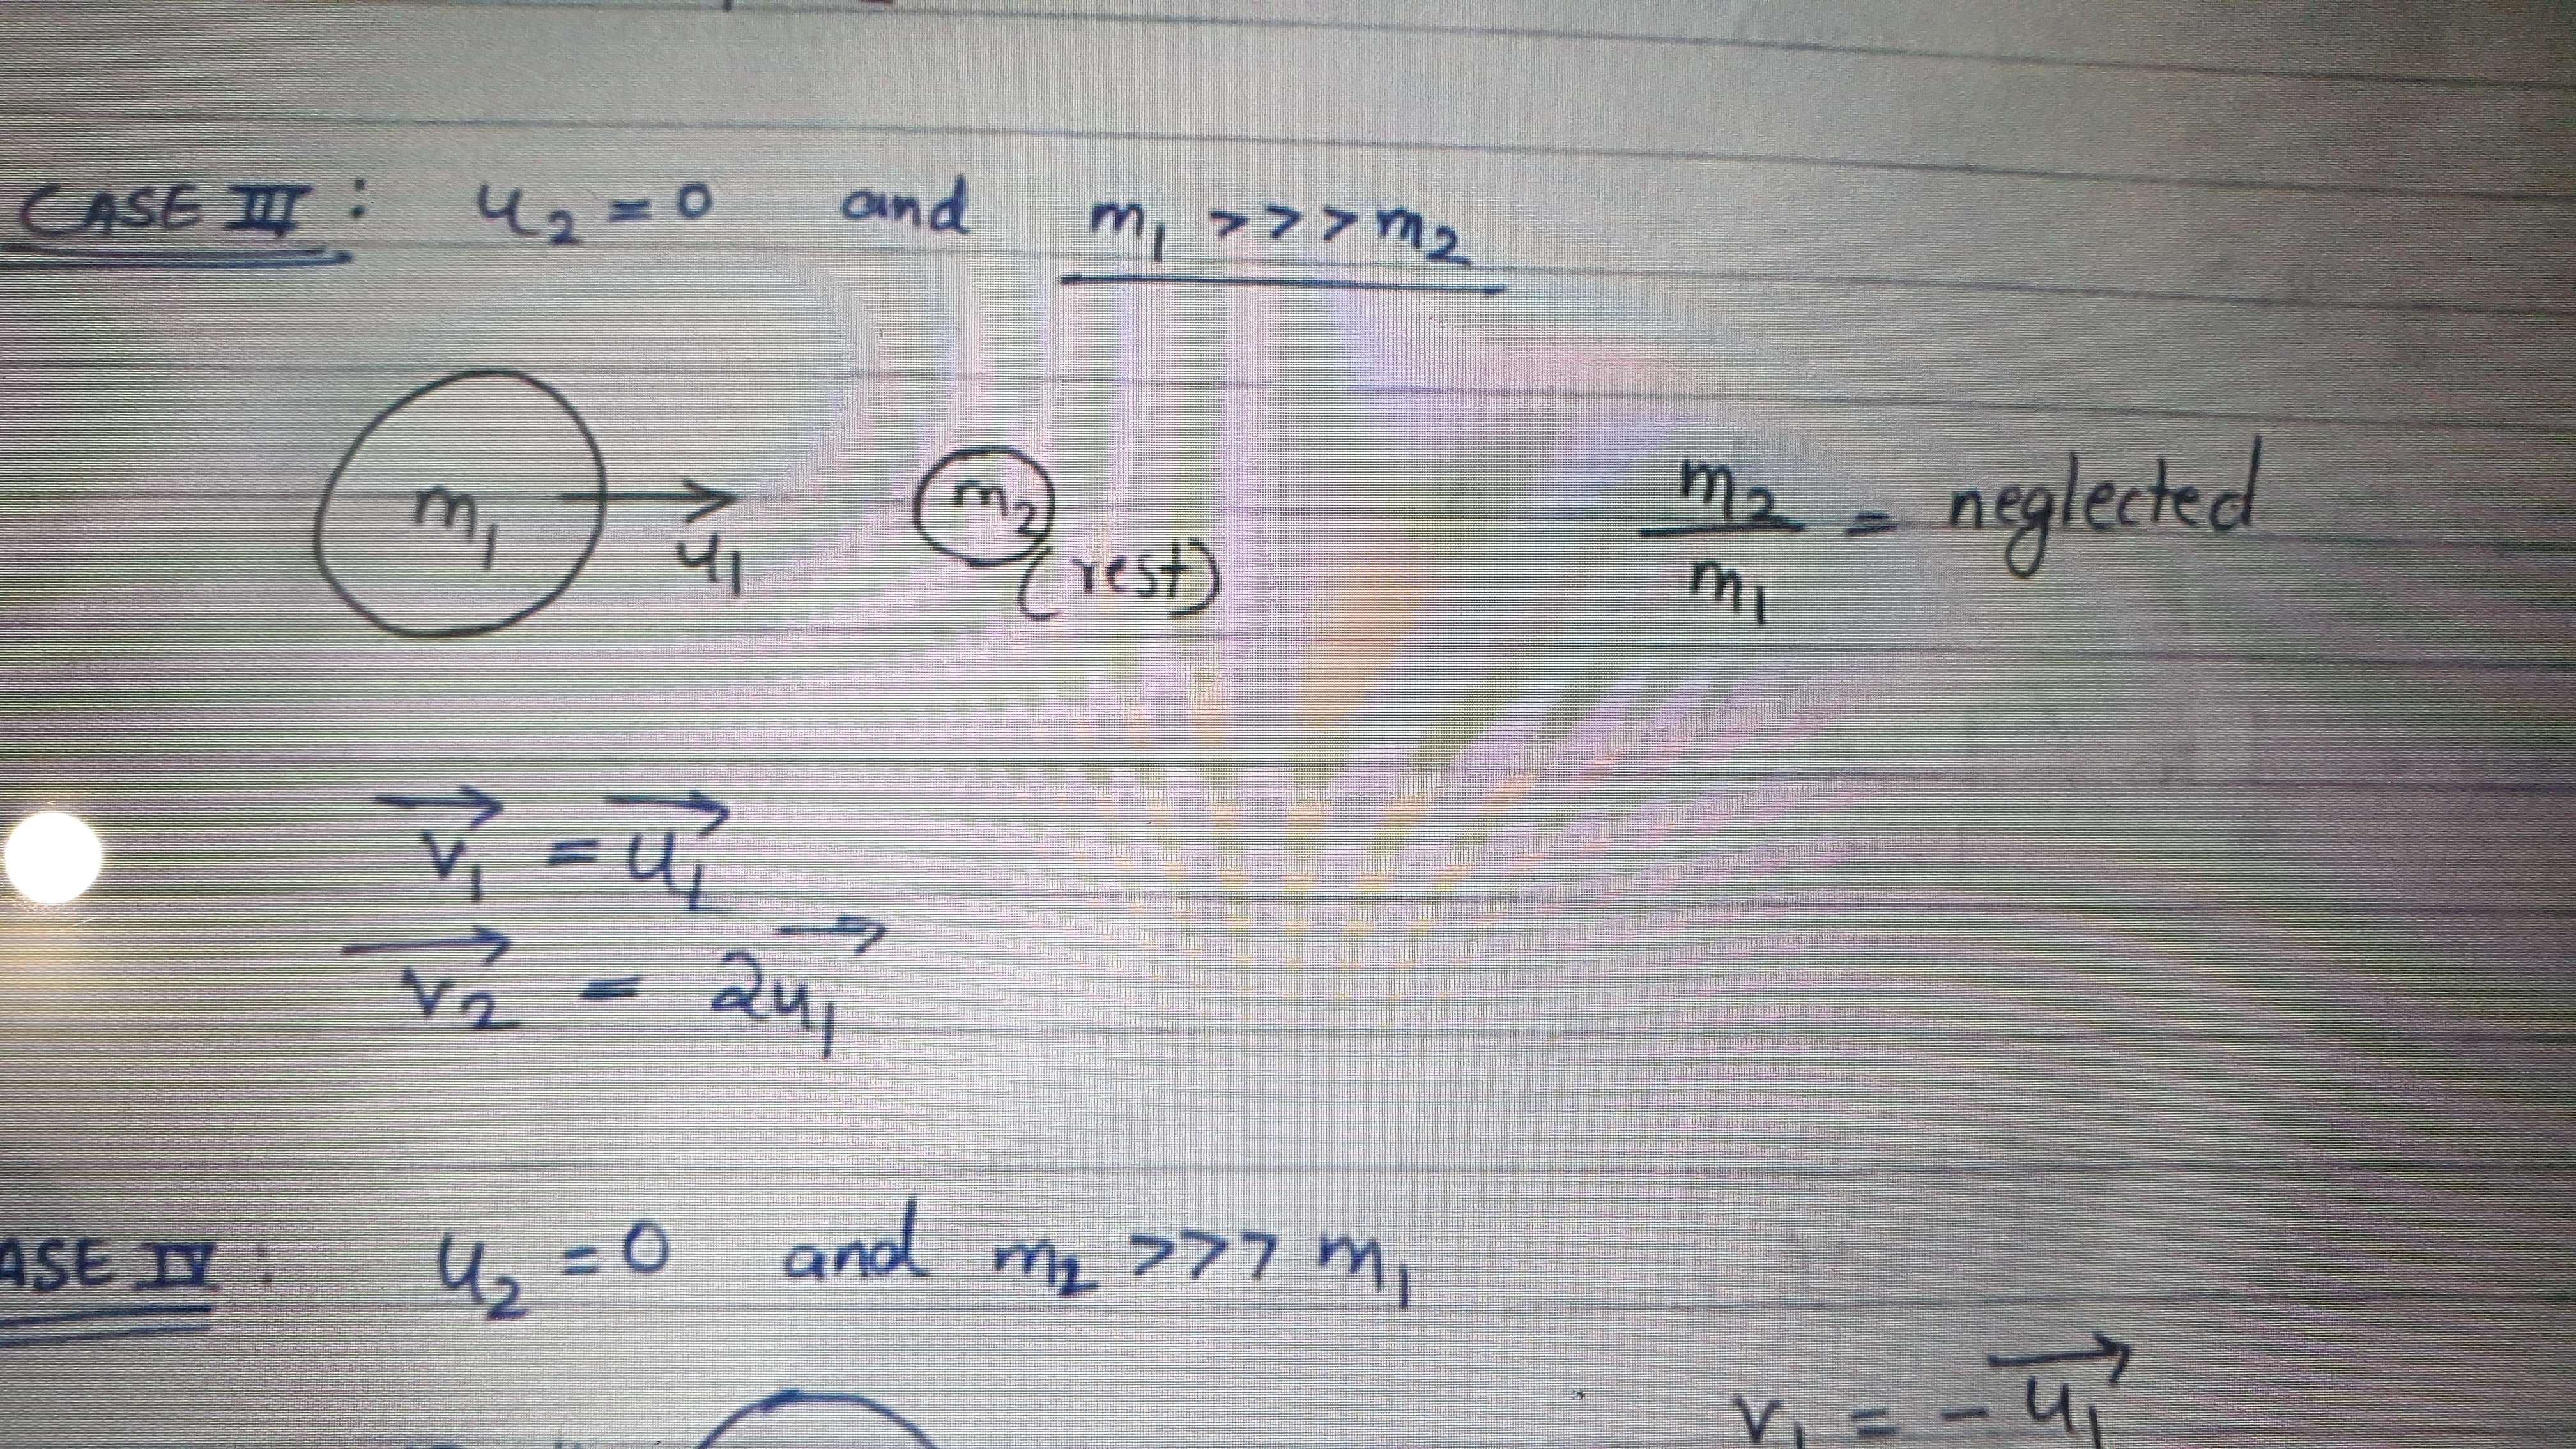 CASE III : u₂ = 0 and m₁ >>> m₂
m₁ u₁ m₂ (rest) m₂/m₁ = neglected
v₁⃗ = u₁⃗
v₂⃗ = 2u₁⃗
ASE IV : u₂ = 0 and m₂ >>> m₁
v₁ = -u₁⃗